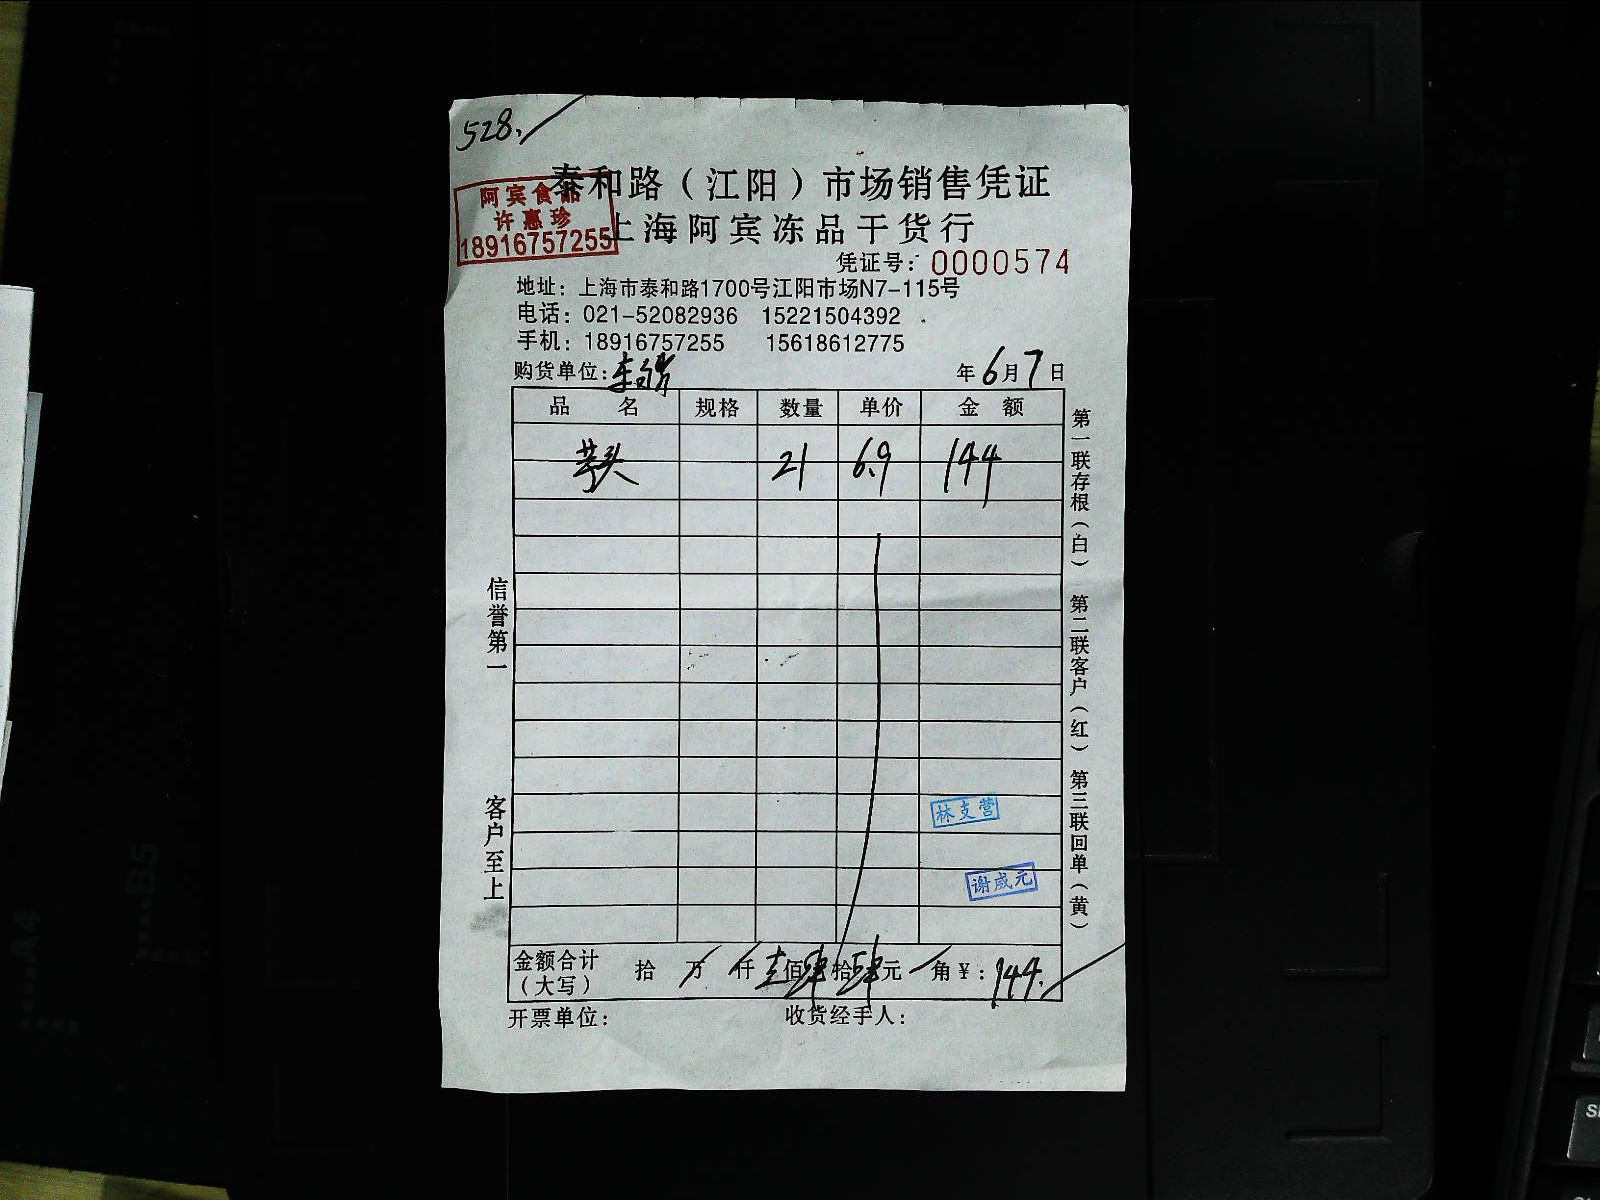 528.
泰和路（江阳）市场销售凭证
阿宾食品
许惠珍
18916757255
上海阿宾冻品干货行
凭证号：0000574
地址：上海市泰和路1700号江阳市场N7-115号
电话：021-52082936 15221504392
手机：18916757255 15618612775
购货单位：
年6月7日
品 名 规格 数量 单价 金 额
芋头 21 6.9 144
信誉第一 客户至上
第一联存根（白） 第二联客户（红） 第三联回单（黄）
林支营
谢威元
金额合计（大写） 拾 万 仟 壹佰肆拾肆元 角￥：144.
开票单位： 收货经手人：
A4
B5